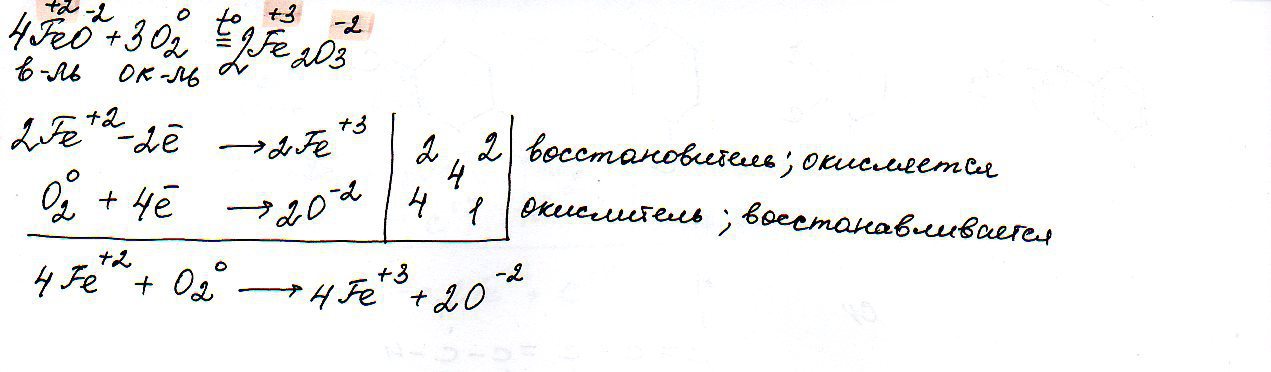 4Fe⁺²O⁻² + 3O₂⁰ t° = 2Fe₂⁺³O₃⁻²
в-ль ок-ль
2Fe⁺² - 2ē → 2Fe⁺³ | 2 4 2 | восстановитель; окисляется
O₂⁰ + 4ē → 2O⁻² | 4 1 | окислитель; восстанавливается
4Fe⁺² + O₂⁰ → 4Fe⁺³ + 2O⁻²